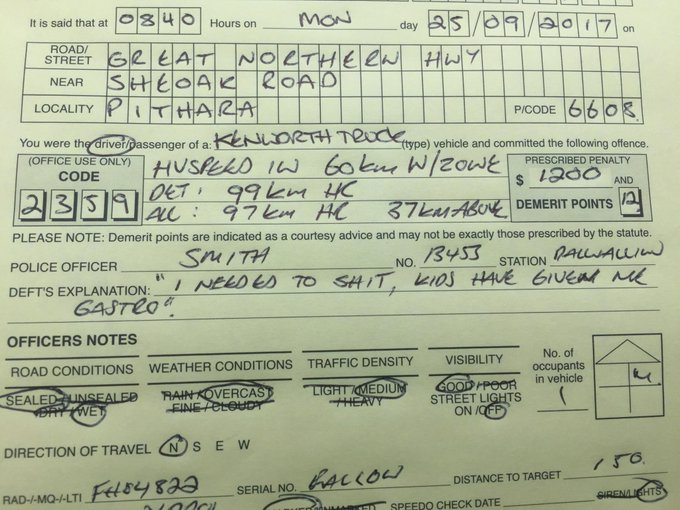 It is said that at 0840 Hours on MON day 25/09/2017 on
ROAD/STREET GREAT NORTHERN HWY
NEAR SHEOAK ROAD
LOCALITY PITHARA P/CODE 6608
You were the driver/passenger of a: KENWORTH TRUCK (type) vehicle and committed the following offence.
(OFFICE USE ONLY) CODE 2359
HVSPEED IN 60km W/ZONE
DET: 99km HR
ALL: 97km HR 37km ABOVE
PRESCRIBED PENALTY $ 1200 AND
DEMERIT POINTS 12
PLEASE NOTE: Demerit points are indicated as a courtesy advice and may not be exactly those prescribed by the statute.
POLICE OFFICER SMITH NO. 13453 STATION DALWALLINU
DEFT'S EXPLANATION: "I NEEDED TO SHIT, KIDS HAVE GIVEN ME
GASTRO".
OFFICERS NOTES
ROAD CONDITIONS WEATHER CONDITIONS TRAFFIC DENSITY VISIBILITY No. of occupants in vehicle 1
SEALED/UNSEALED RAIN/OVERCAST LIGHT/MEDIUM GOOD/POOR
DRY/WET FINE/CLOUDY /HEAVY STREET LIGHTS
ON/OFF
DIRECTION OF TRAVEL N S E W
RAD-/-MQ-/-LTI SERIAL NO. DISTANCE TO TARGET 150.
SPEEDO CHECK DATE SIREN/LIGHTS